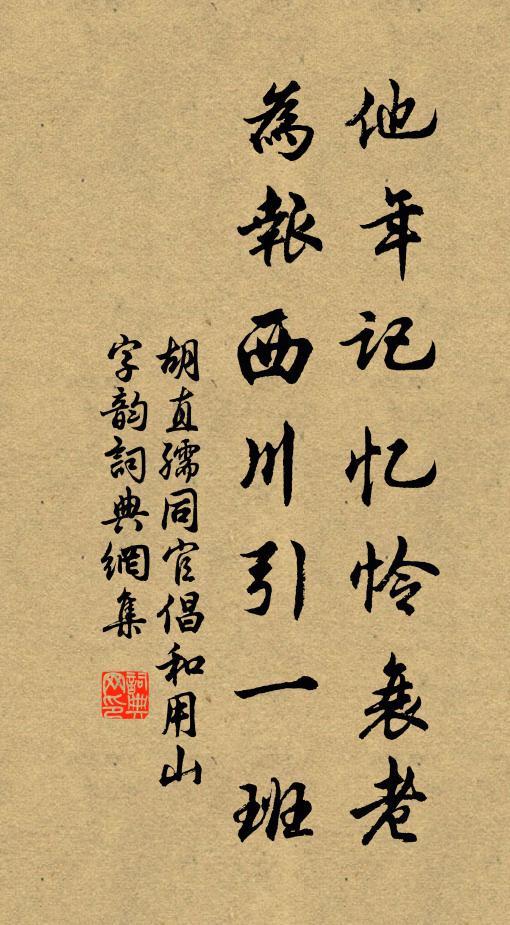 他年记忆怜衰老
為報西川引一班
胡直孺同官倡和用山
字韵詞典網集
詞典
网印